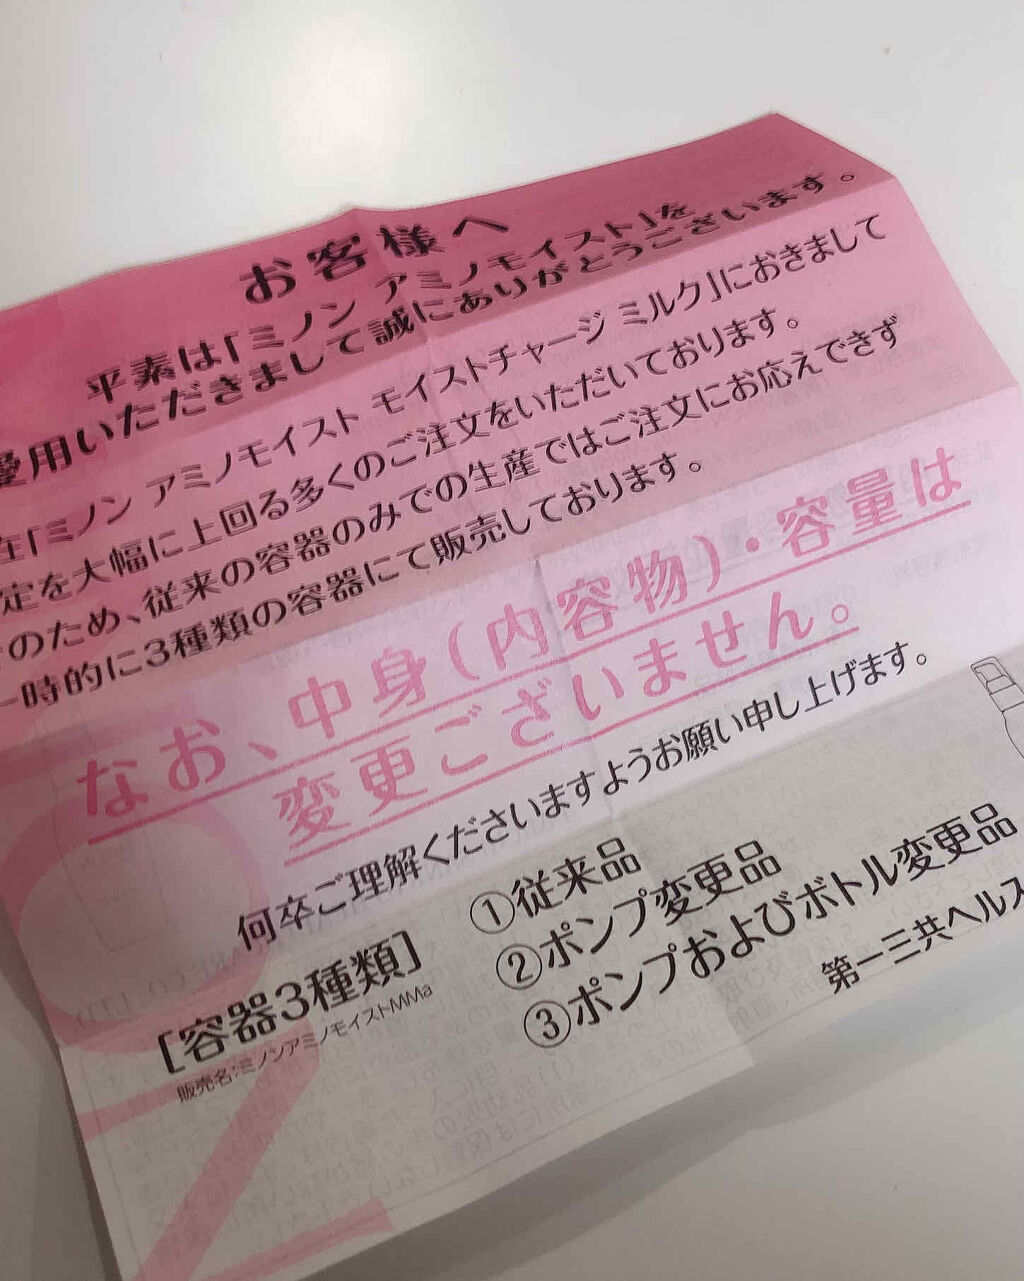 お客様へ
平素は「ミノン アミノモイスト」を
愛用いただきまして誠にありがとうございます。
在「ミノン アミノモイスト モイストチャージ ミルク」におきまして
定を大幅に上回る多くのご注文をいただいております。
のため、従来の容器のみでの生産ではご注文にお応えできず
一時的に3種類の容器にて販売しております。
なお、中身(内容物)・容量は
変更ございません。
何卒ご理解くださいますようお願い申し上げます。
[容器3種類]
①従来品
②ポンプ変更品
③ポンプおよびボトル変更品
販売名:ミノンアミノモイストMMa
第一三共ヘルス